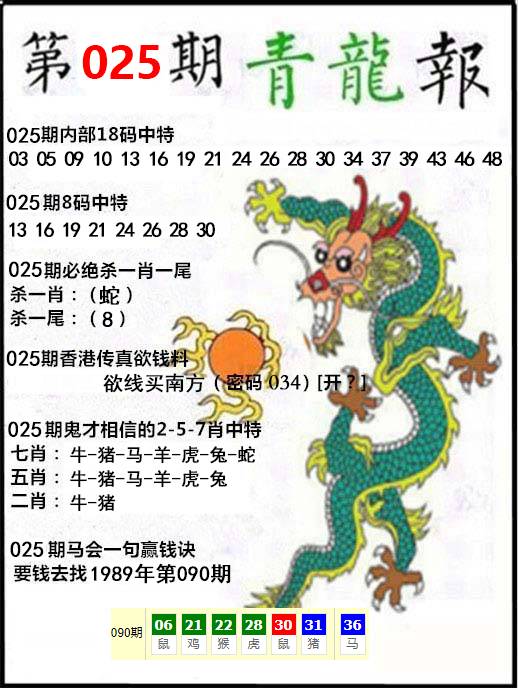 第025期青龍報
025期内部18码中特
03 05 09 10 13 16 19 21 24 26 28 30 34 37 39 43 46 48
025期8码中特
13 16 19 21 24 26 28 30
025期必绝杀一肖一尾
杀一肖：（蛇）
杀一尾：（8）
025期香港传真欲钱料
欲线买南方（密码034）[开？]
025期鬼才相信的2-5-7肖中特
七肖：牛-猪-马-羊-虎-兔-蛇
五肖：牛-猪-马-羊-虎-兔
二肖：牛-猪
025期马会一句赢钱诀
要钱去找1989年第090期
090期 06 21 22 28 30 31 36
鼠 鸡 猴 虎 鼠 猪 马